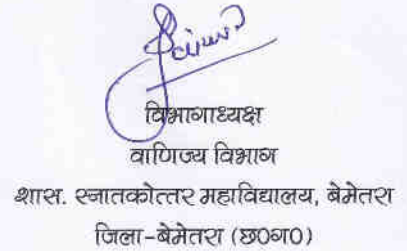 विभागाध्यक्ष
वाणिज्य विभाग
शास. स्नातकोत्तर महाविद्यालय, बेमेतरा
जिला-बेमेतरा (छ0ग0)